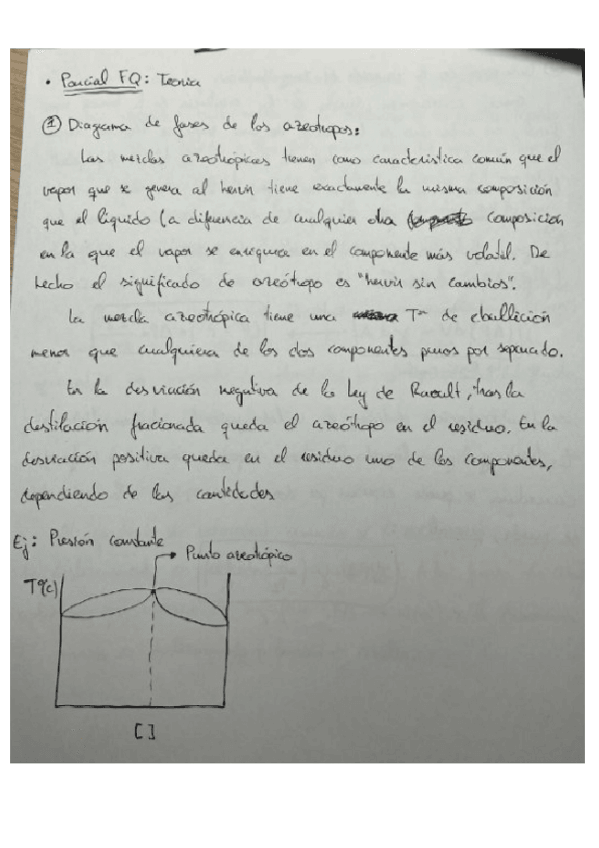 • Parcial FQ: Teoría
① Diagrama de fases de los azeótropos:
Las mezclas azeotrópicas tienen como característica común que el
vapor que se genera al hervir tiene exactamente la misma composición
que el líquido (a diferencia de cualquier otra composición
en la que el vapor se enriquece en el componente más volatil. De
hecho el significado de azeótropo es "hervir sin cambios".
La mezcla azeotrópica tiene una Tª de ebullición
menor que cualquiera de los dos componentes puros por separado.
En la desviación negativa de la ley de Raoult, tras la
destilación fraccionada queda el azeótropo en el residuo. En la
desviación positiva queda en el residuo uno de los componentes,
dependiendo de las cantidades
Ej: Presión constante
Punto azeotrópico
Tª(c)
[ ]